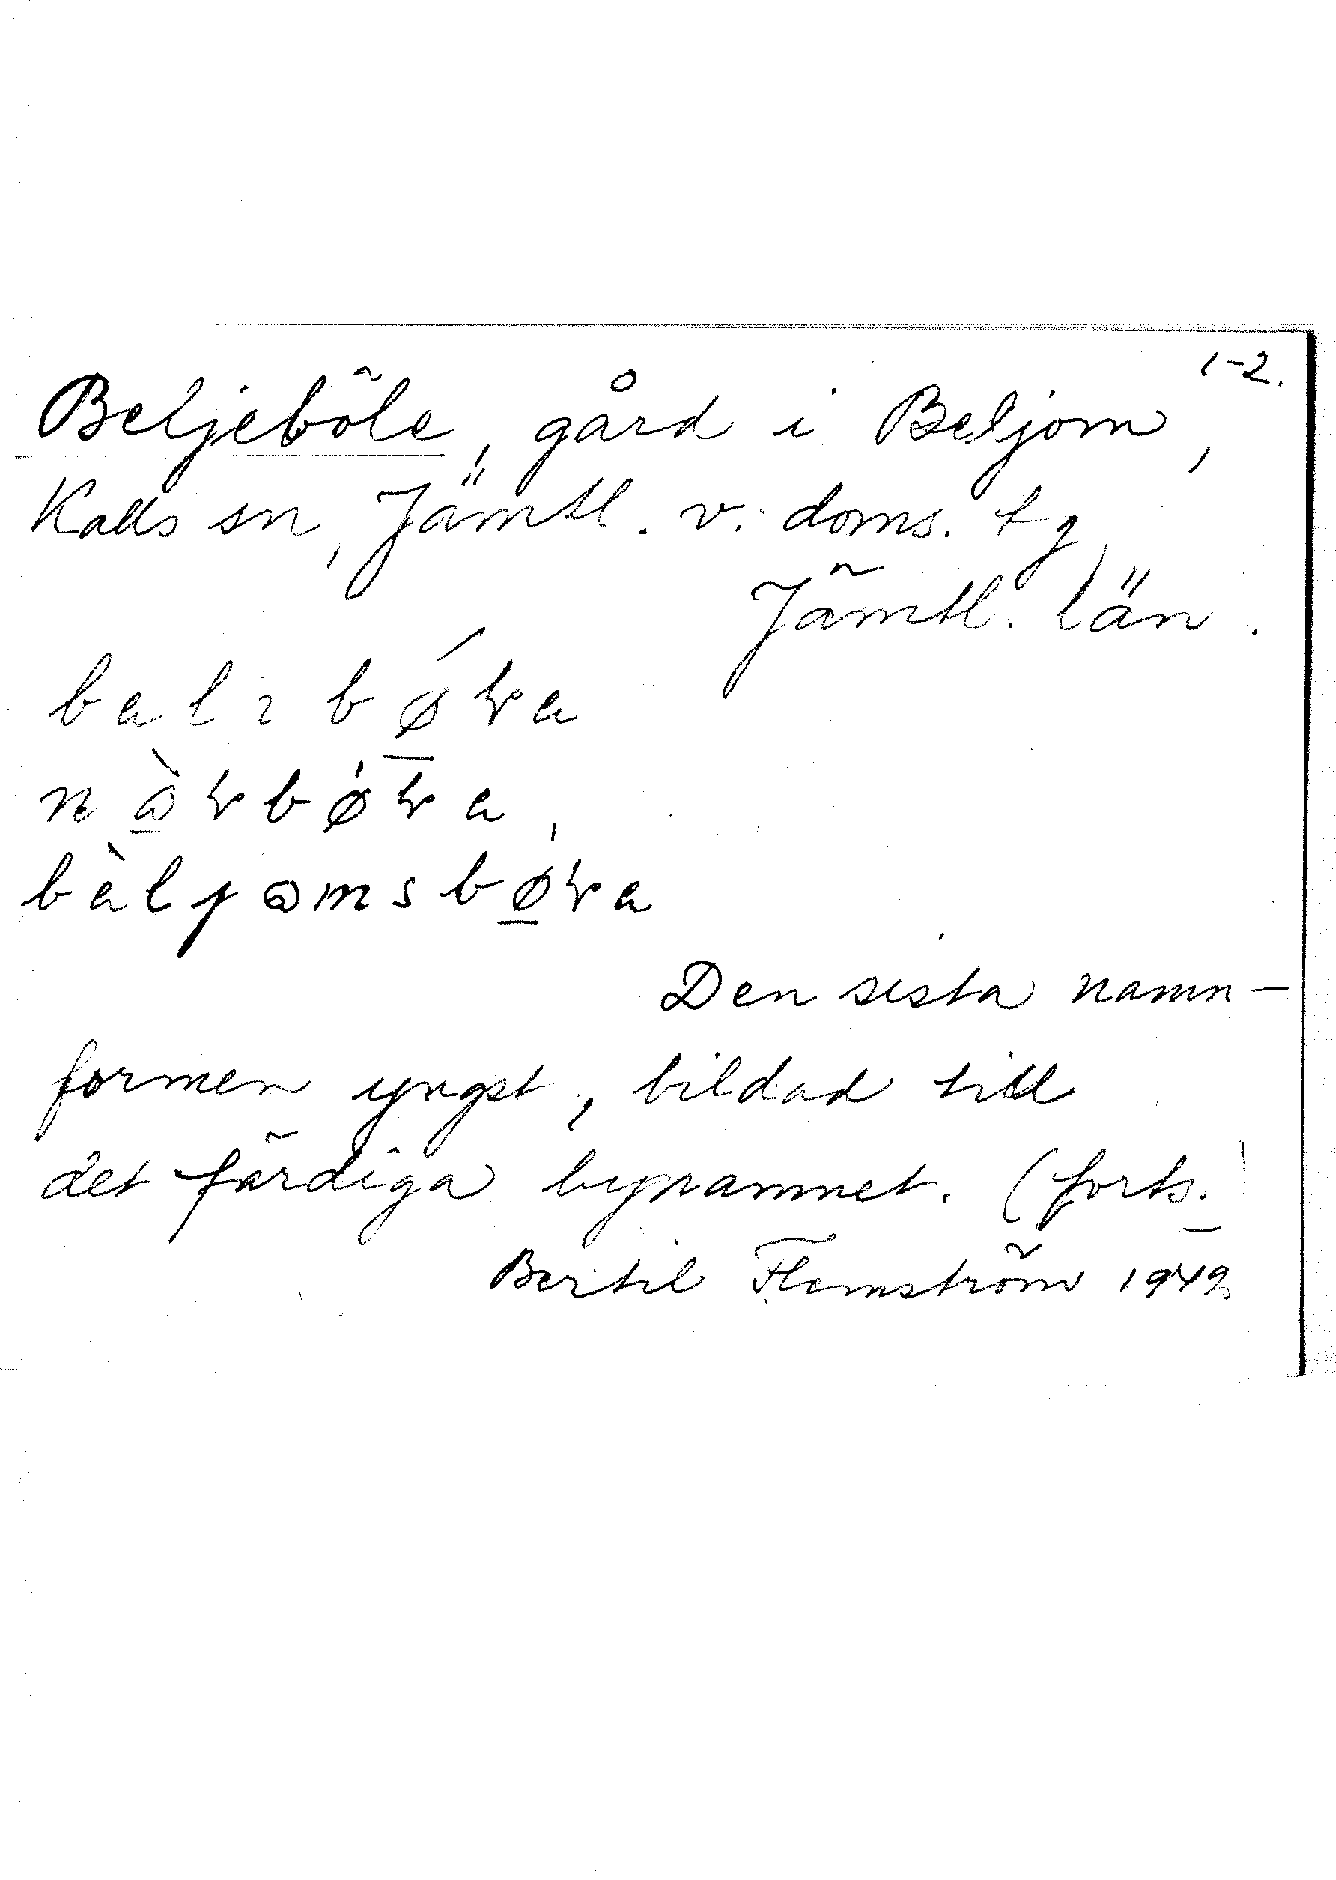 1-2.
Beljeböle, gård i Beljom,
Kalls sn, Jämtl. v. doms. tg,
Jämtl. län.
Den sista namn-
formen yngst, bildad till
det färdiga bynamnet. (forts.
Bertil Flemström 1942